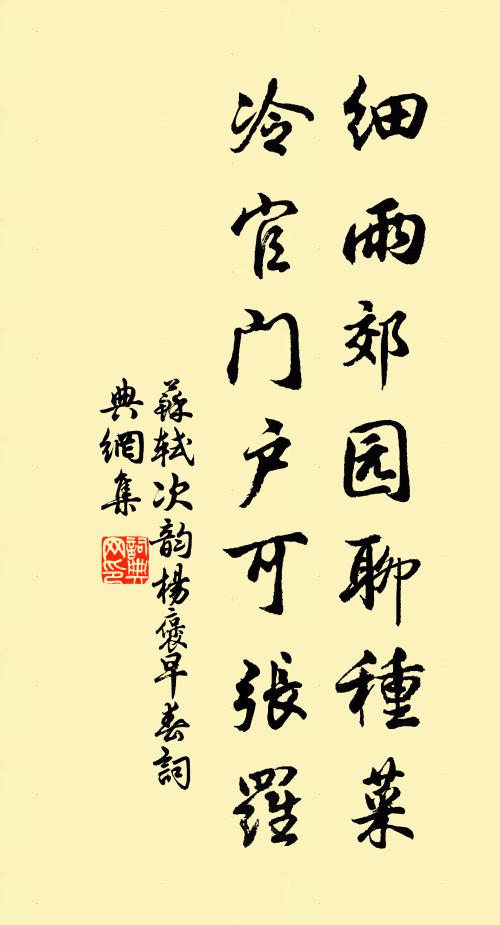 細雨郊园聊種菜
冷官门户可張羅
蘇軾次韵楊褒早春詞
典網集
詞典
网印